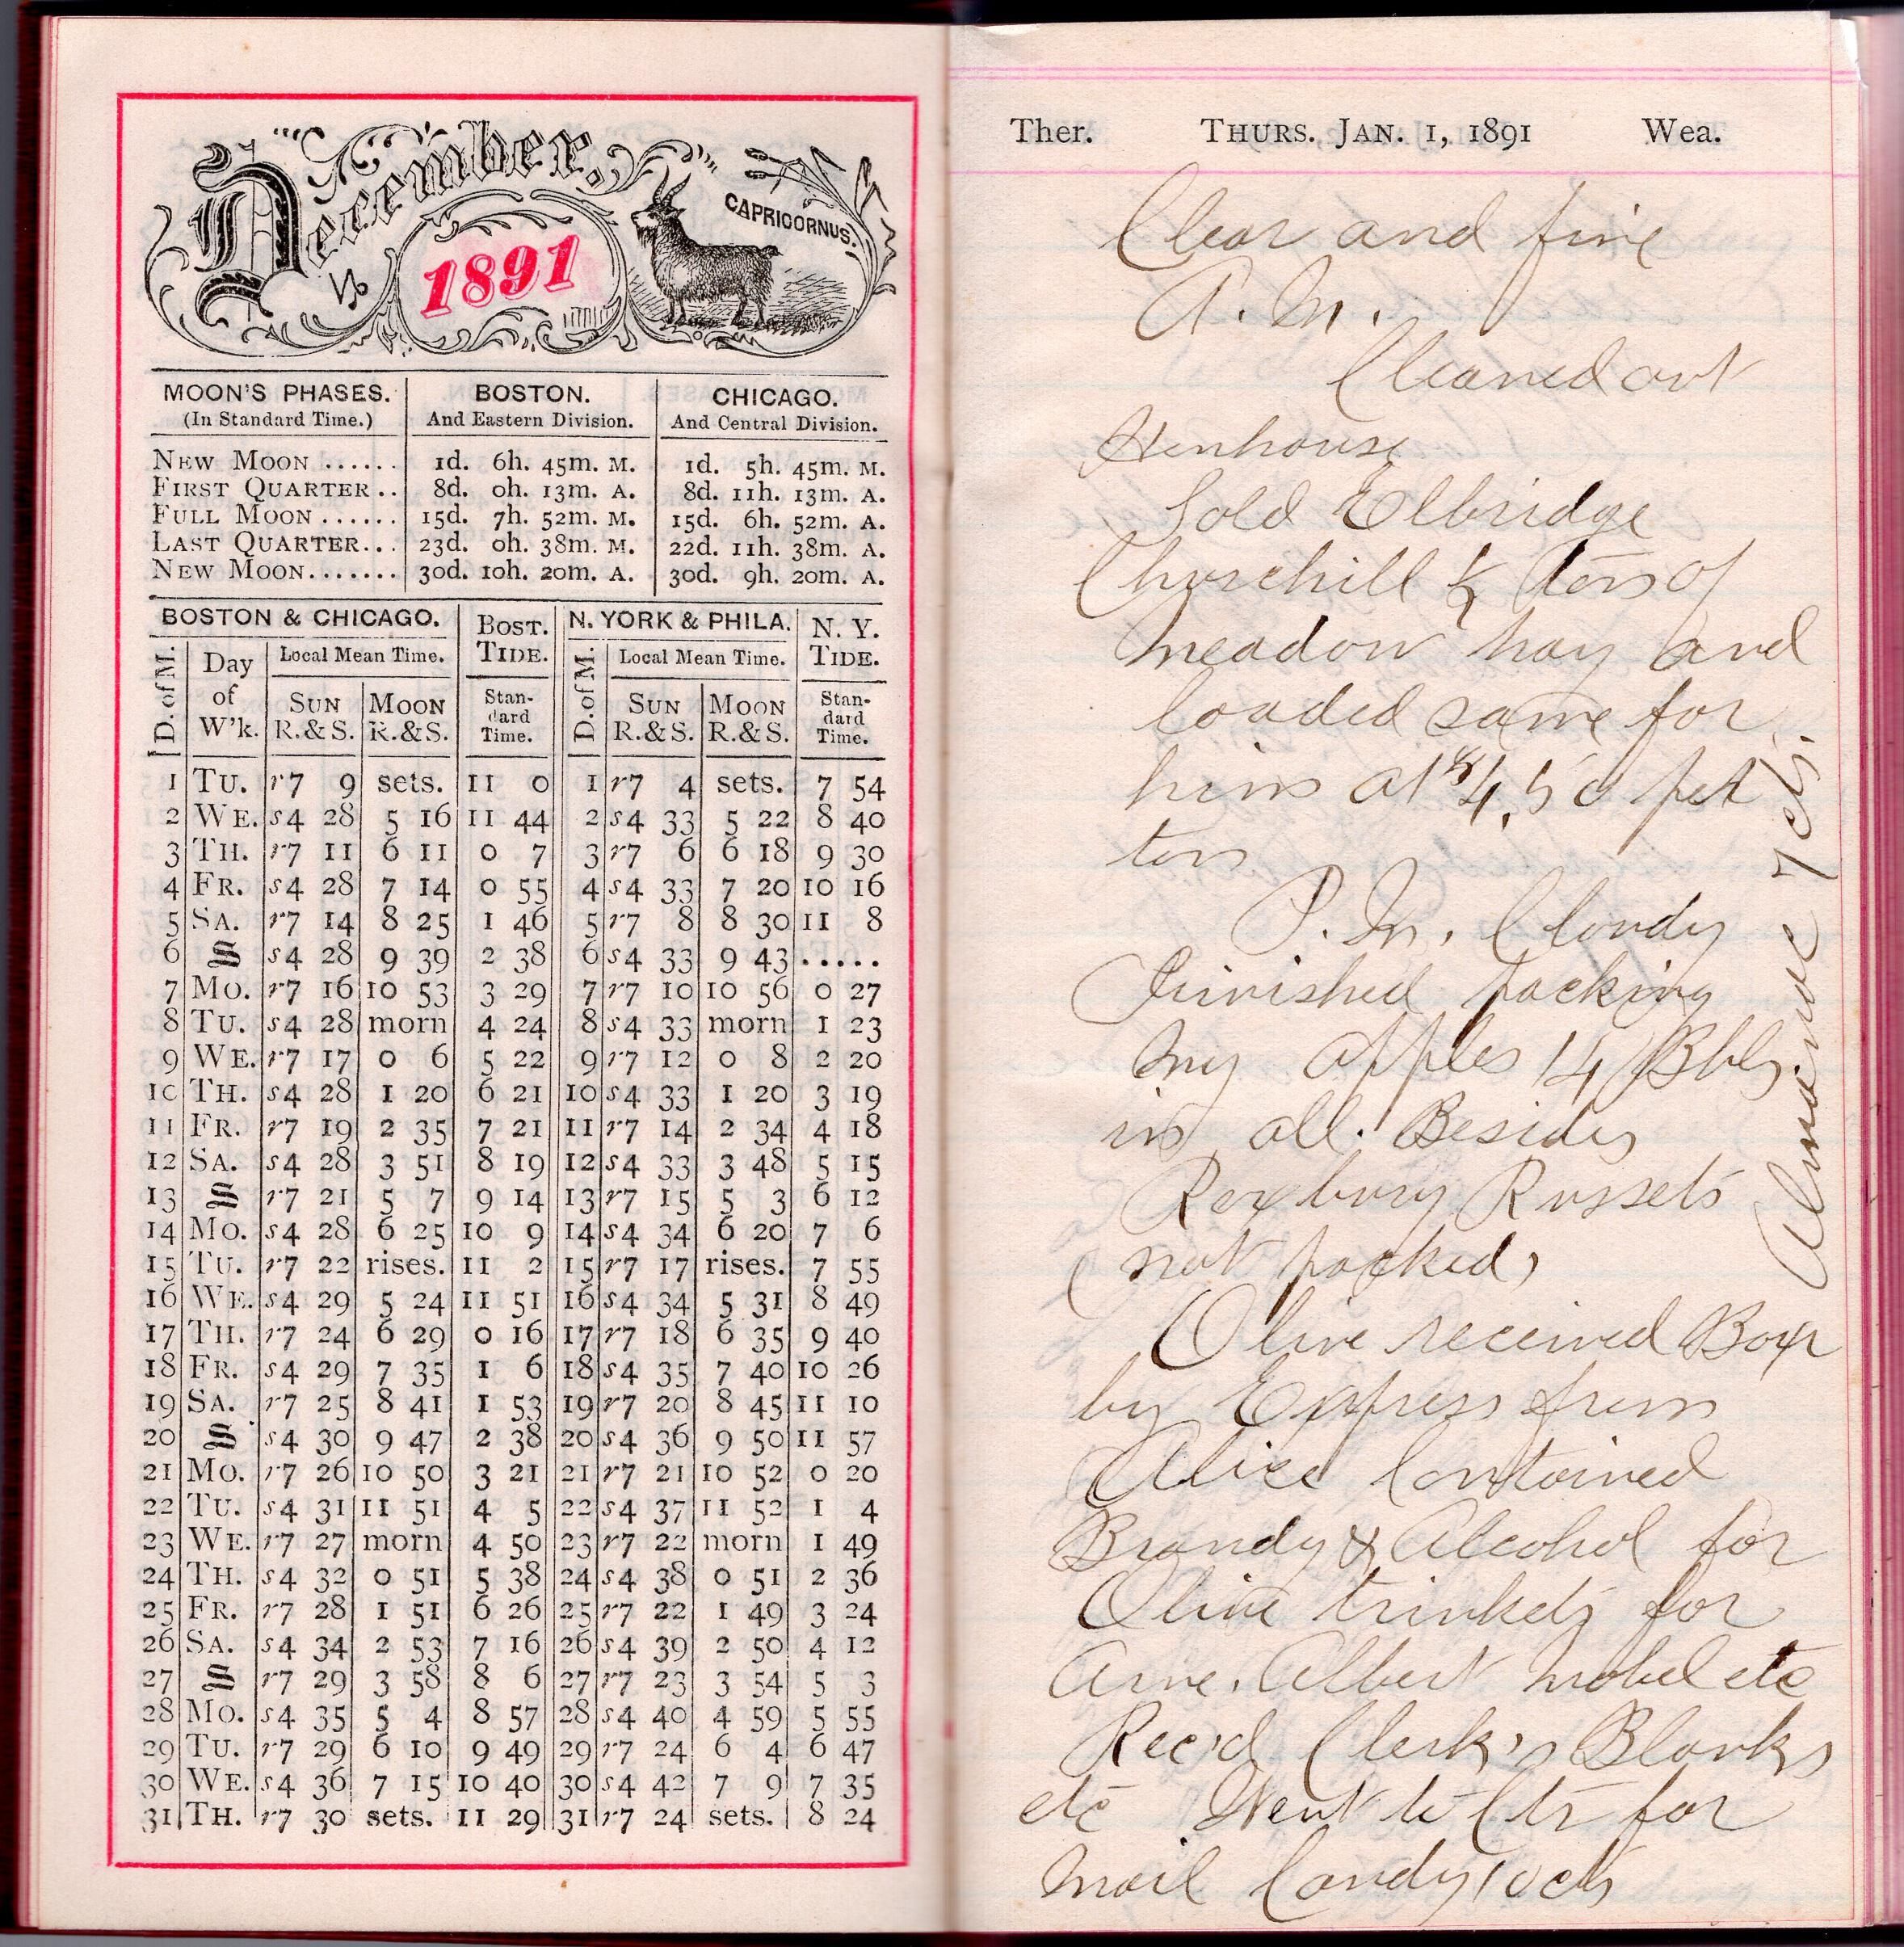 December,
1891
CAPRICORNUS.
MOON'S PHASES. BOSTON. CHICAGO.
(In Standard Time.) And Eastern Division. And Central Division.
NEW MOON ...... 1d. 6h. 45m. M. 1d. 5h. 45m. M.
FIRST QUARTER.. 8d. 0h. 13m. A. 8d. 11h. 13m. A.
FULL MOON ...... 15d. 7h. 52m. M. 15d. 6h. 52m. A.
LAST QUARTER... 23d. 0h. 38m. M. 22d. 11h. 38m. A.
NEW MOON....... 30d. 10h. 20m. A. 30d. 9h. 20m. A.
BOSTON & CHICAGO. BOST. TIDE. N. YORK & PHILA. N. Y. TIDE.
D. of M. Day of W'k. Local Mean Time. Standard Time. D. of M. Local Mean Time. Standard Time.
SUN R.&S. MOON R.&S. SUN R.&S. MOON R.&S.
1 TU. r7 9 sets. 11 0 1 r7 4 sets. 7 54
2 WE. s4 28 5 16 11 44 2 s4 33 5 22 8 40
3 TH. r7 11 6 11 0 7 3 r7 6 6 18 9 30
4 FR. s4 28 7 14 0 55 4 s4 33 7 20 10 16
5 SA. r7 14 8 25 1 46 5 r7 8 8 30 11 8
6 S s4 28 9 39 2 38 6 s4 33 9 43 .....
7 MO. r7 16 10 53 3 29 7 r7 10 10 56 0 27
8 TU. s4 28 morn 4 24 8 s4 33 morn 1 23
9 WE. r7 17 0 6 5 22 9 r7 12 0 8 2 20
10 TH. s4 28 1 20 6 21 10 s4 33 1 20 3 19
11 FR. r7 19 2 35 7 21 11 r7 14 2 34 4 18
12 SA. s4 28 3 51 8 19 12 s4 33 3 48 5 15
13 S r7 21 5 7 9 14 13 r7 15 5 3 6 12
14 MO. s4 28 6 25 10 9 14 s4 34 6 20 7 6
15 TU. r7 22 rises. 11 2 15 r7 17 rises. 7 55
16 WE. s4 29 5 24 11 51 16 s4 34 5 31 8 49
17 TH. r7 24 6 29 0 16 17 r7 18 6 35 9 40
18 FR. s4 29 7 35 1 6 18 s4 35 7 40 10 26
19 SA. r7 25 8 41 1 53 19 r7 20 8 45 11 10
20 S s4 30 9 47 2 38 20 s4 36 9 50 11 57
21 MO. r7 26 10 50 3 21 21 r7 21 10 52 0 20
22 TU. s4 31 11 51 4 5 22 s4 37 11 52 1 4
23 WE. r7 27 morn 4 50 23 r7 22 morn 1 49
24 TH. s4 32 0 51 5 38 24 s4 38 0 51 2 36
25 FR. r7 28 1 51 6 26 25 r7 22 1 49 3 24
26 SA. s4 34 2 53 7 16 26 s4 39 2 50 4 12
27 S r7 29 3 58 8 6 27 r7 23 3 54 5 3
28 MO. s4 35 5 4 8 57 28 s4 40 4 59 5 55
29 TU. r7 29 6 10 9 49 29 r7 24 6 4 6 47
30 WE. s4 36 7 15 10 40 30 s4 42 7 9 7 35
31 TH. r7 30 sets. 11 29 31 r7 24 sets. 8 24
Ther. THURS. JAN. 1, 1891 Wea.
Clear and fine
A. M.
Cleaned out
Henhouse
Sold Elbridge
Churchill ½ tons of
meadow hay and
loaded same for
him at $4.50 per
ton
P. M. Cloudy
Finished packing
my apples 14 Bbls
in all. Besides
Roxbury Russets
not packed,
Olive received Box
by Express from
Alice Contained
Brandy & Alcohol for
Olive trinkets for
Arne. Albert Mabel etc
Rec'd Clerk's Blanks
etc Went to Ctr for
mail Candy 10cts
Almanac 7 cts.